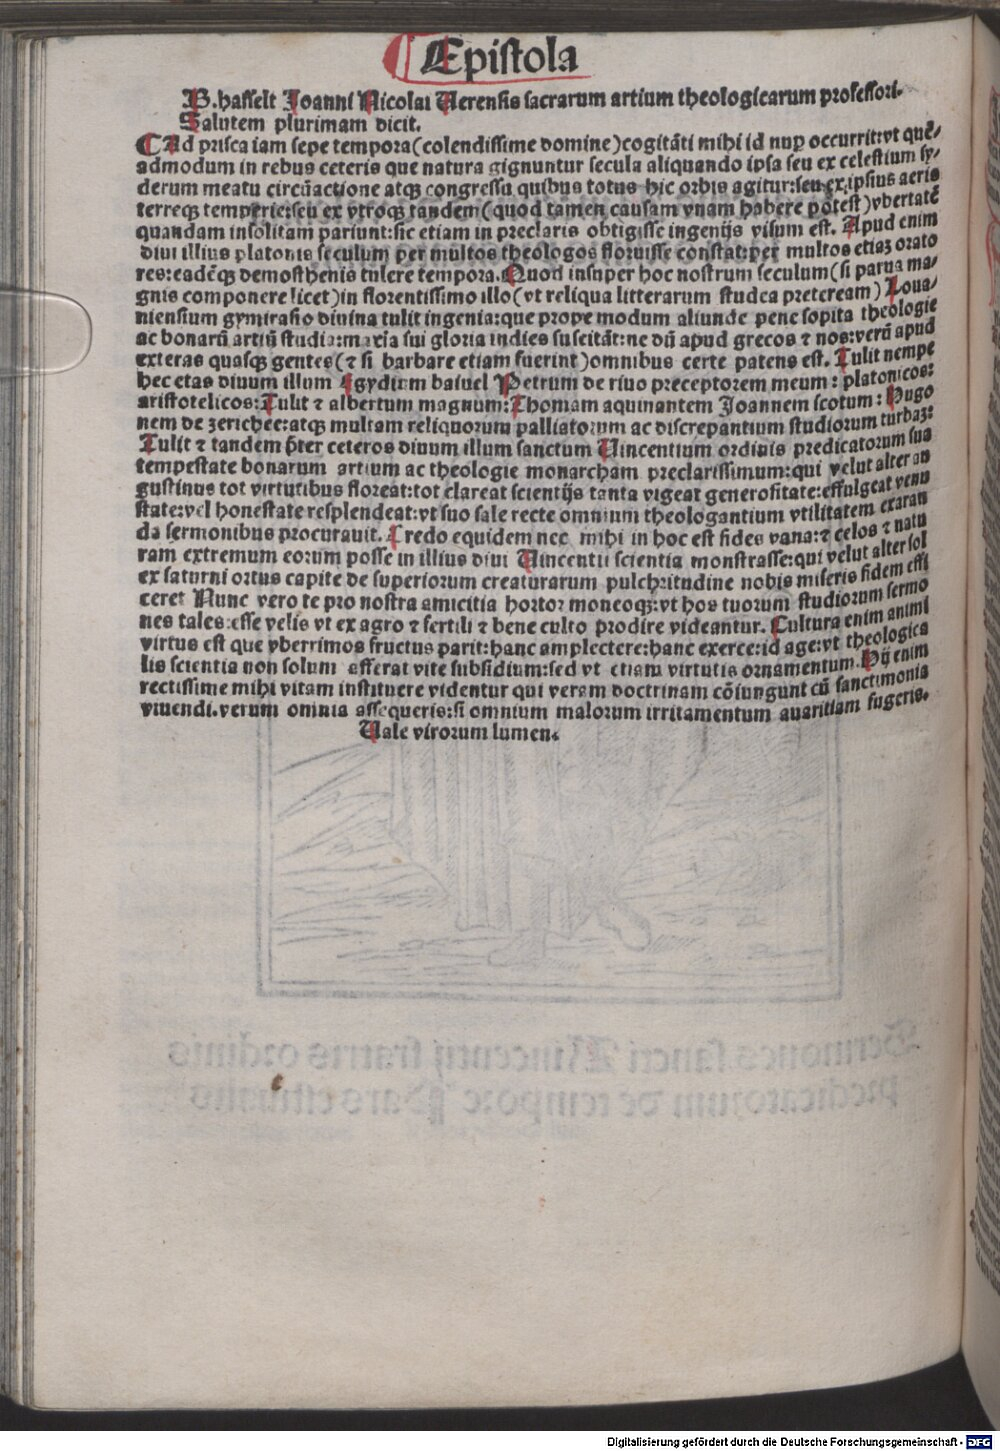 ¶ Epistola
B. hasselt Joanni Nicolai Verensis sacrarum artium theologicarum professori.
Salutem plurimam dicit.
¶ Ad prisca iam sepe tempora (colendissime domine) cogitãti mihi id nup occurrit: vt quẽ/
admodum in rebus ceteris que natura gignuntur secula aliquando ipsa seu ex celestium sy/
derum meatu circũactione atqꝫ congressu quibus totus hic orbis agitur: seu ex ipsius aeris
terreqꝫ temperie: seu ex vtroqꝫ tandem (quod tamen causam vnam habere potest) vbertatẽ
quandam insolitam pariunt: sic etiam in preclaris obtigisse ingenijs visum est. Apud enim
diui illius platonis seculum per multos theologos floruisse constat: per multos etiaꝫ orato
res: eadẽqꝫ demosthenis tulere tempora. Quod insuper hoc nostrum seculum (si parua ma/
gnis componere licet) in florentissimo illo (vt reliqua litterarum studea preteream) Loua/
niensium gymnasio diuina tulit ingenia: que prope modum aliunde pene sopita theologie
ac bonarũ artiũ studia: mareia sui gloria indies suscitãt: ne dũ apud grecos ⁊ nos: verũ apud
exteras quasqꝫ gentes (⁊ si barbare etiam fuerint) omnibus certe patens est. Tulit nempe
hec etas diuum illum Egydium baiuel Petrum de riuo preceptorem meum: platonicos:
aristotelicos: Tulit ⁊ albertum magnum: Thomam aquinantem Joannem scotum: Hugo
nem de zerichee: atqꝫ multam reliquorum palliatorum ac discrepantium studiorum turbaꝫ:
Tulit ⁊ tandem p̃ter ceteros diuum illum sanctum Vincentium ordinis predicatorum sua
tempestate bonarum artium ac theologie monarcham preclarissimum: qui velut alter au
gustinus tot virtutibus floreat: tot clareat scientijs tanta vigeat generositate: effulgeat venu
state: vel honestate resplendeat: vt suo sale recte omnium theologantium vtilitatem exaran
da sermonibus procurauit. Credo equidem nec mihi in hoc est fides vana: ⁊ celos ⁊ natu
ram extremum eorum posse in illius diui Vincentii scientia monstrasse: qui velut alter sol
ex saturni ortus capite de superiorum creaturarum pulchritudine nobis miseris fidem effi
ceret Nunc vero te pro nostra amicitia hortor moneoqꝫ: vt hos tuorum studiorum sermo
nes tales esse velis vt ex agro ⁊ fertili ⁊ bene culto prodire videantur. Cultura enim animi
virtus est que vberrimos fructus parit: hanc amplectere: hanc exerce: id age: vt theologica
lis scientia non solum afferat vite subsidium: sed vt etiam virtutis ornamentum. Hij enim
rectissime mihi vitam instituere videntur qui veram doctrinam cõiungunt cũ sanctimonia
viuendi. verum omnia assequeris: si omnium malorum irritamentum auaritiam fugeris.
Vale virorum lumen.
Sermones sancti Vincentij fratris ordinis
predicatorum de tempore Pars estiualis
Digitalisierung gefördert durch die Deutsche Forschungsgemeinschaft - DFG